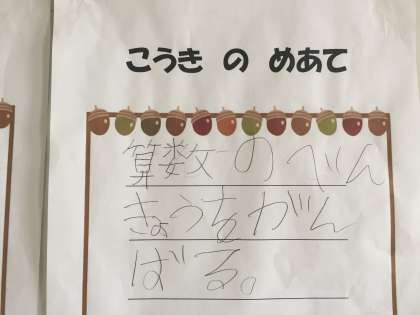 こうき の めあて
算数のべん
きょうをがん
ばる。